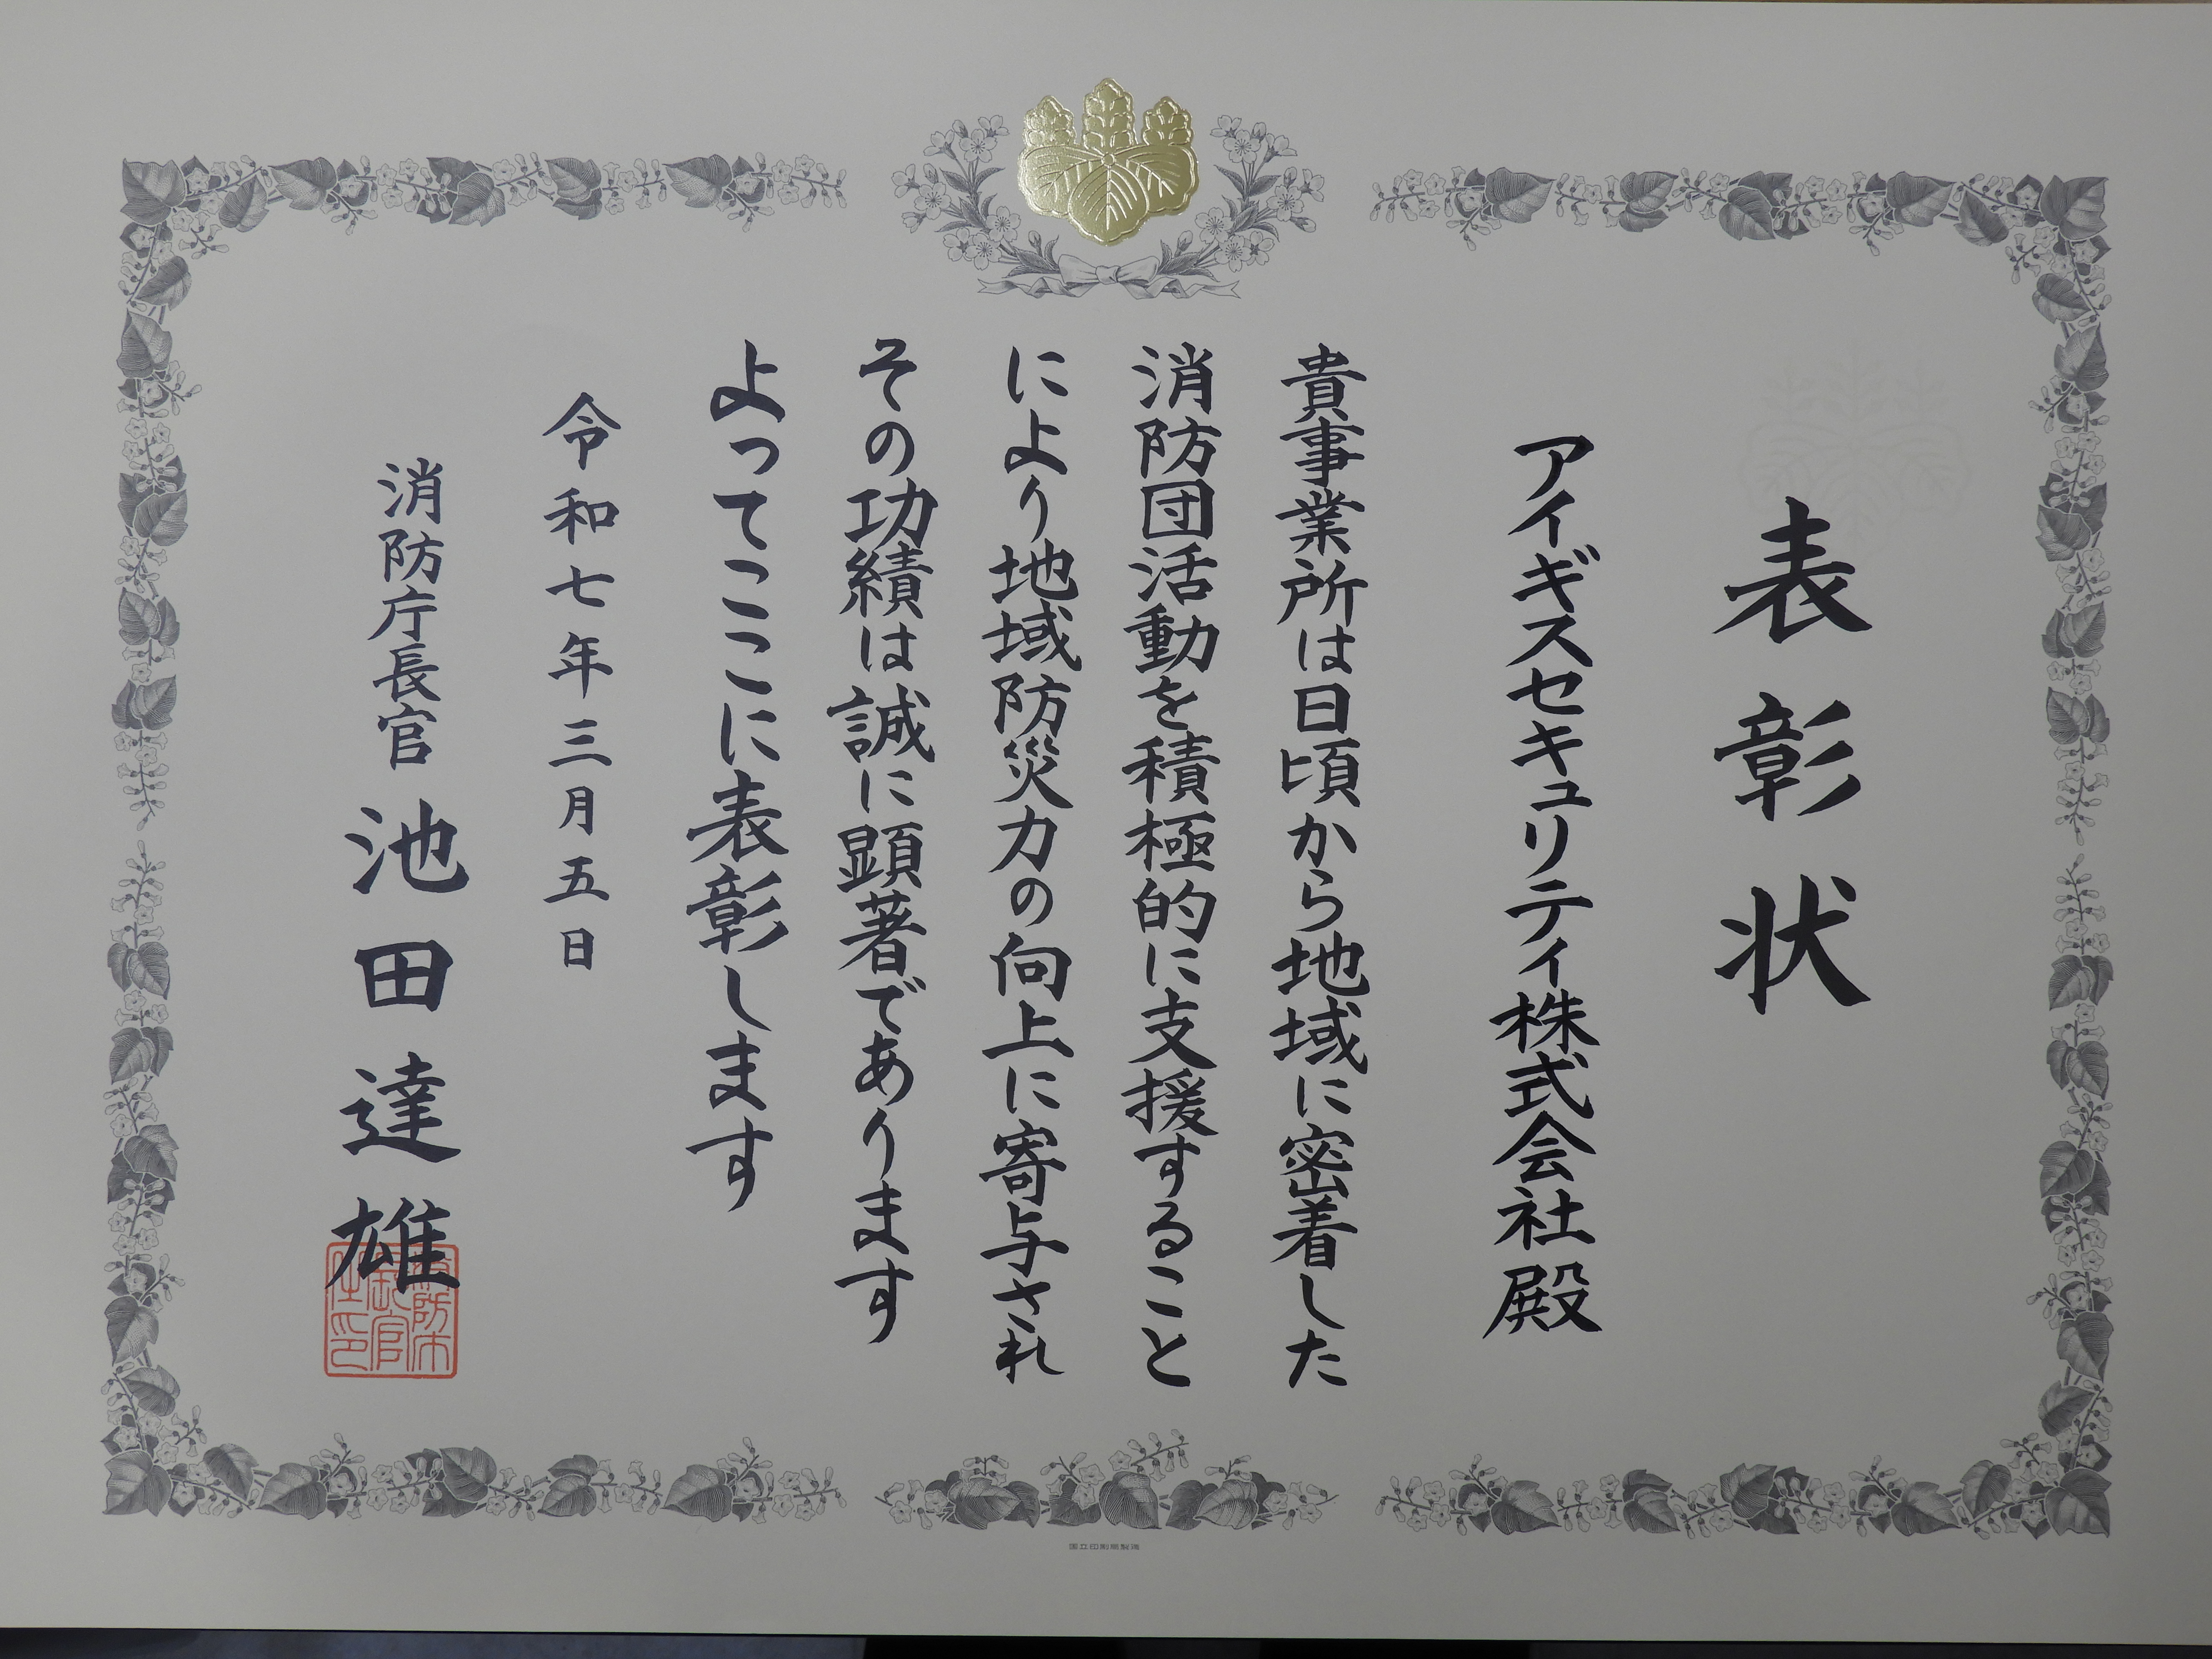 表彰状
アイギスセキュリティ株式会社殿
貴事業所は日頃から地域に密着した
消防団活動を積極的に支援すること
により地域防災力の向上に寄与され
その功績は誠に顕著であります
よってここに表彰します
令和七年三月五日
消防庁長官 池田達雄
国立印刷局製造